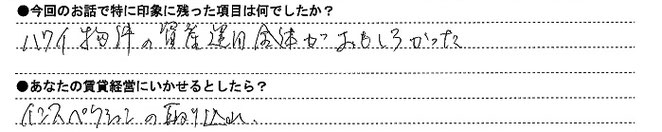 ●今回のお話で特に印象に残った項目は何でしたか？
ハワイ物件の資産運用全体がおもしろかった
●あなたの賃貸経営にいかせるとしたら？
インスペクションの取り込み、